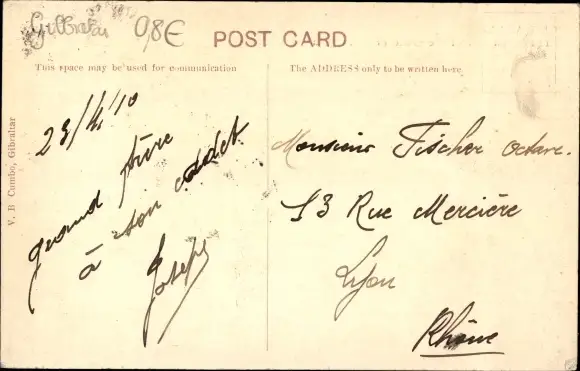 Gibraltar 08€
POST CARD
This space may be used for communication
The ADDRESS only to be written here.
V. B Cumbo, Gibraltar
23/4/10
grand frère
à son cadet
Joseph
Monsieur Fischer Octave.
13 Rue Mercière
Lyon
Rhône